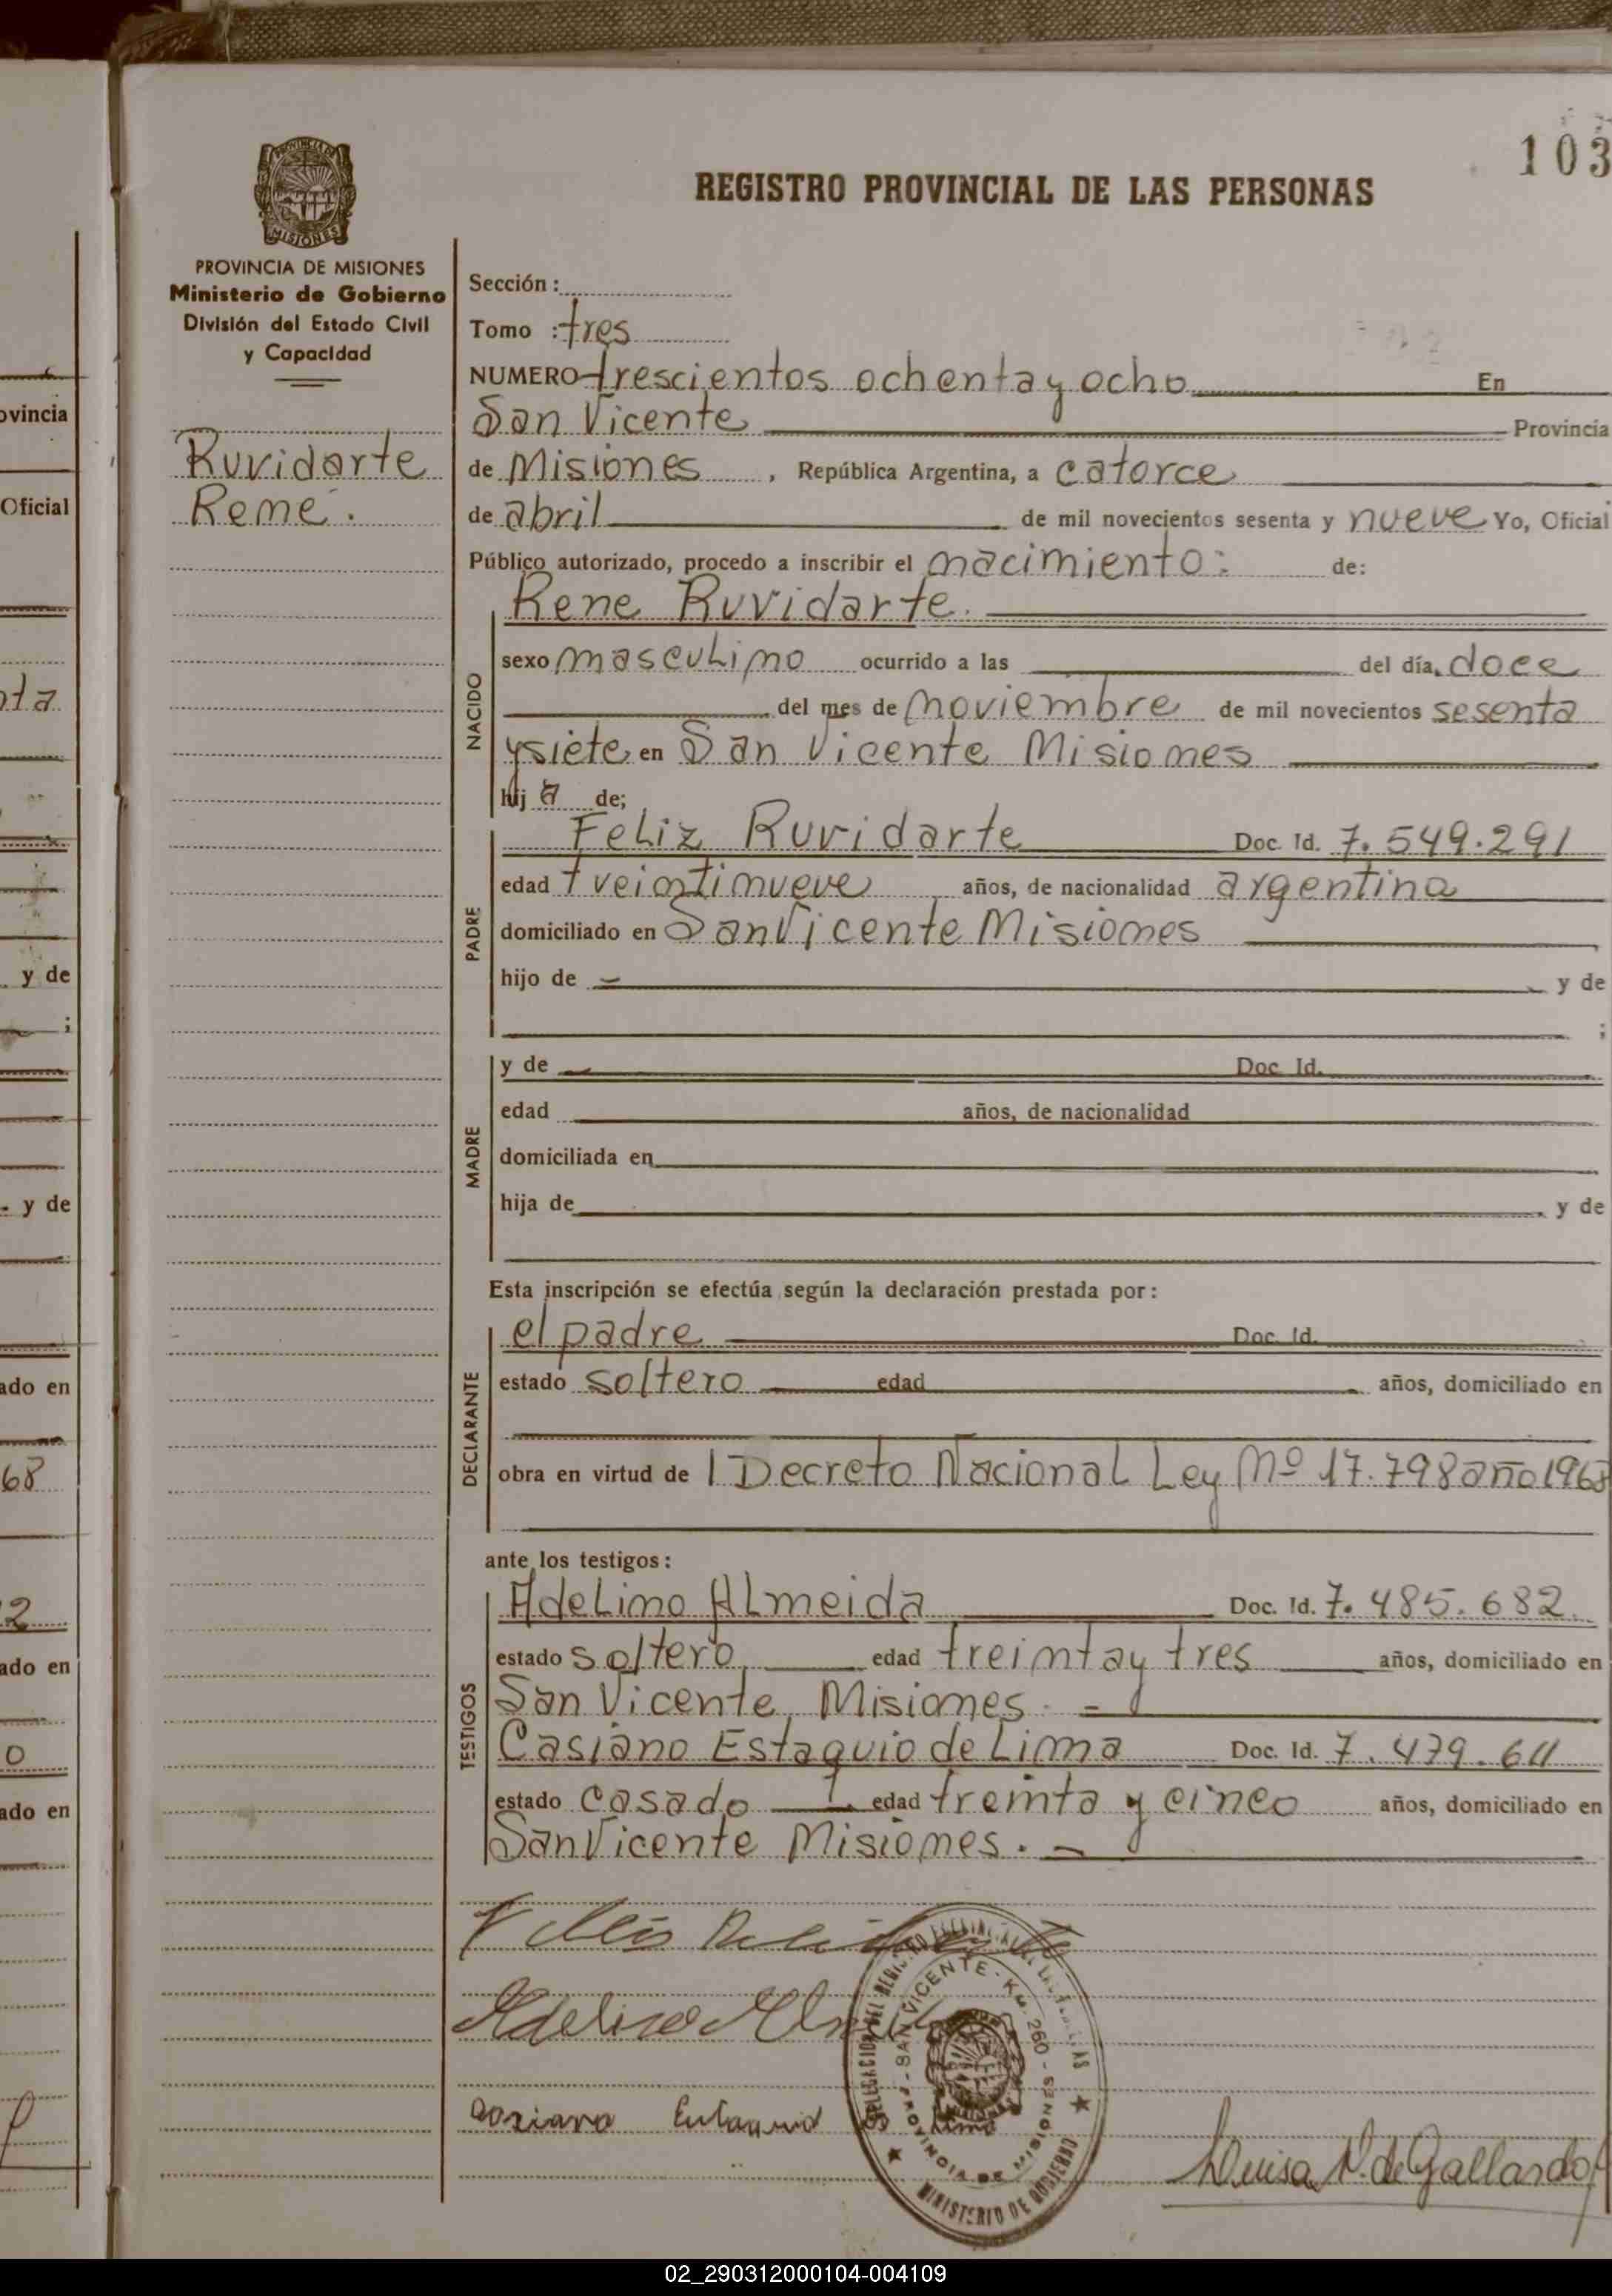 103
REGISTRO PROVINCIAL DE LAS PERSONAS
PROVINCIA DE MISIONES
Ministerio de Gobierno
División del Estado Civil
y Capacidad
Ruvidarte
Rene.
Sección :
Tomo : tres
NUMERO trescientos ochenta y ocho En
San Vicente Provincia
de Misiones , República Argentina, a catorce
de abril de mil novecientos sesenta y nueve Yo, Oficial
Público autorizado, procedo a inscribir el nacimiento: de:
Rene Ruvidarte.
NACIDO
sexo masculino ocurrido a las del día, doce
del mes de noviembre de mil novecientos sesenta
y siete en San Vicente Misiones
hij a de;
PADRE
Feliz Ruvidarte Doc. Id. 7.549.291
edad treintinueve años, de nacionalidad argentina
domiciliado en San Vicente Misiones
hijo de y de
;
MADRE
y de Doc. Id.
edad años, de nacionalidad
domiciliada en
hija de y de
Esta inscripción se efectúa según la declaración prestada por :
DECLARANTE
el padre Doc. Id.
estado soltero edad años, domiciliado en
obra en virtud de l Decreto Nacional Ley Nº 17.798 año 1968
ante los testigos :
TESTIGOS
Adelino Almeida Doc. Id. 7.485.682.
estado soltero edad treinta y tres años, domiciliado en
San Vicente, Misiones. =
Casiano Estaquio de Lima Doc. Id. 7.479.611
estado casado edad treinta y cinco años, domiciliado en
San Vicente Misiones.
Adelino
SAN VICENTE - KM. 260 - SENOISIM
PROVINCIA DE MISIONES
MINISTERIO DE GOBIERNO
Luisa N. de Gallardo
ovincia
Oficial
nta
y de
;
y de
ado en
68
2
ado en
0
ado en
02_290312000104-004109